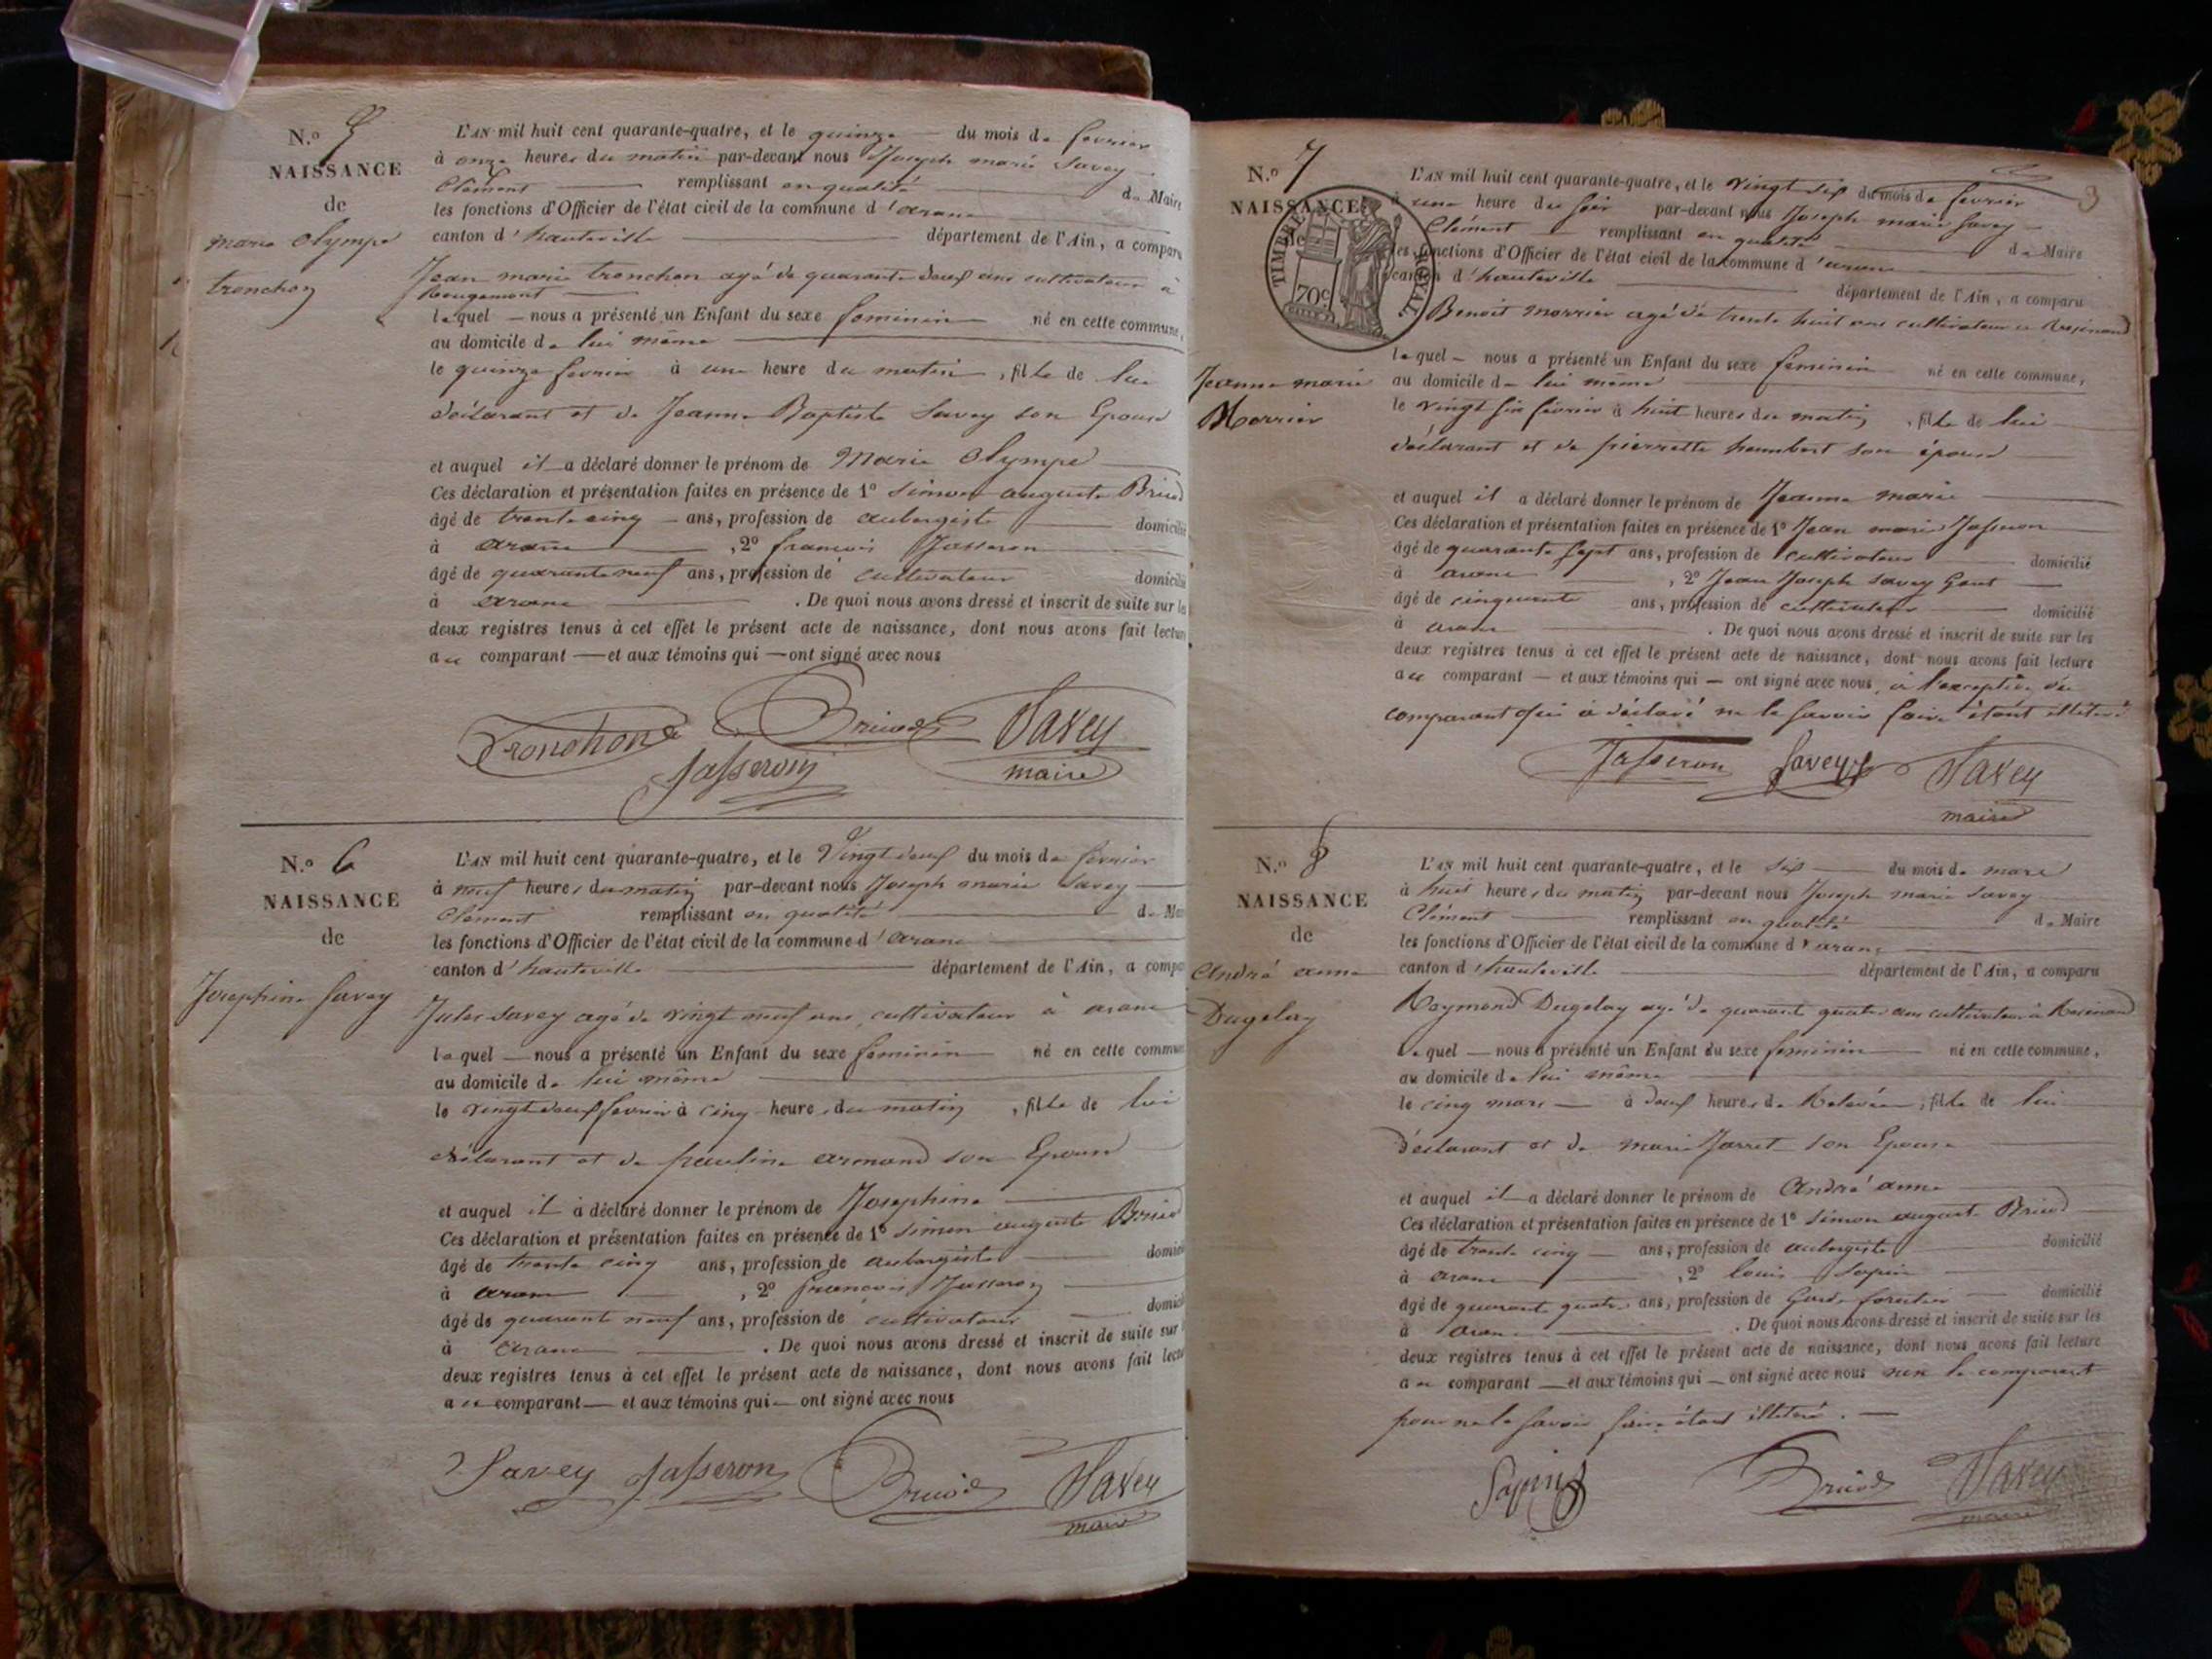 N.o 5
NAISSANCE
de
marie Olympe
tronchon
L'AN mil huit cent quarante-quatre, et le quinze du mois de fevrier
à onze heures du matin par-devant nous Joseph marie Savey
Clément remplissant en qualité de Maire
les fonctions d'Officier de l'état civil de la commune d'arane
canton d'hauteville département de l'Ain, a comparu
Jean marie tronchon agé de quarante deux ans cultivateur à
Rougemont
lequel nous a présenté un Enfant du sexe feminin né en cette commune,
au domicile de lui même
le quinze fevrier à une heure du matin, fille de lui
déclarant et de Jeanne Baptiste Savey son Epouse
et auquel il a déclaré donner le prénom de Marie Olympe
Ces déclaration et présentation faites en présence de 1º Simon auguste Briod
âgé de trente cinq ans, profession de aubergiste domicilié
à arane, 2º francois Jasseron
âgé de quarante neuf ans, profession de cultivateur domicilié
à arane. De quoi nous avons dressé et inscrit de suite sur les
deux registres tenus à cet effet le présent acte de naissance, dont nous avons fait lecture
au comparant et aux témoins qui ont signé avec nous
Tronchon Briod Savey
Jasseron maire
N.o 6
NAISSANCE
de
Josephine Savey
L'AN mil huit cent quarante-quatre, et le Vingt deux du mois de fevrier
à neuf heures du matin par-devant nous Joseph marie Savey
Clément remplissant en qualité de Mai
les fonctions d'Officier de l'état civil de la commune d'arane
canton d'hauteville département de l'Ain, a compa
Jules Savey agé de vingt neuf ans, cultivateur à arane
lequel nous a présenté un Enfant du sexe feminin né en cette commun
au domicile de lui même
le vingt deux fevrier à cinq heures du matin, fille de lui
déclarant et de pauline armand son Epouse
et auquel il a déclaré donner le prénom de Josephine
Ces déclaration et présentation faites en présence de 1º Simon auguste Briod
âgé de trente cinq ans, profession de aubergiste domicil
à arane, 2º francois Jasseron
âgé de quarante neuf ans, profession de cultivateur domicil
à arane. De quoi nous avons dressé et inscrit de suite sur
deux registres tenus à cet effet le présent acte de naissance, dont nous avons fait lectu
au comparant et aux témoins qui ont signé avec nous
Savey Jasseron Briod Savey
maire
3
N.o 7
NAISSANCE
TIMBRE ROYAL
70c
Jeanne marie
Morrier
L'AN mil huit cent quarante-quatre, et le vingt six du mois de fevrier
à une heure du soir par-devant nous Joseph marie Savey
Clément remplissant en qualité de Maire
les fonctions d'Officier de l'état civil de la commune d'arane
canton d'hauteville département de l'Ain, a comparu
Benoit Morrier agé de trente huit ans cultivateur a
lequel nous a présenté un Enfant du sexe féminin né en cette commune,
au domicile de lui même
le vingt six février à huit heures du matin, fille de lui
déclarant et de pierrette humbert son épouse
et auquel il a déclaré donner le prénom de Jeanne marie
Ces déclaration et présentation faites en présence de 1º Jean marie Jasseron
âgé de quarante sept ans, profession de cultivateur domicilié
à arane, 2º Jean Joseph Savey
âgé de cinquante ans, profession de cultivateur domicilié
à arane. De quoi nous avons dressé et inscrit de suite sur les
deux registres tenus à cet effet le présent acte de naissance, dont nous avons fait lecture
au comparant et aux témoins qui ont signé avec nous, à l'exception du
comparant qui a déclaré ne le savoir faire étant illiteré
Jasseron Savey Savey
maire
N.o 8
NAISSANCE
de
André anne
Dugelay
L'AN mil huit cent quarante-quatre, et le six du mois de mars
à huit heures du matin par-devant nous Joseph marie Savey
Clément remplissant en qualité de Maire
les fonctions d'Officier de l'état civil de la commune d'arane
canton d'hauteville département de l'Ain, a comparu
Raymond Dugelay agé de quarante quatre ans cultivateur à
lequel nous a présenté un Enfant du sexe feminin né en cette commune,
au domicile de lui même
le cinq mars à deux heures de Relevée, fille de lui
déclarant et de marie Jarret son Epouse
et auquel il a déclaré donner le prénom de André anne
Ces déclaration et présentation faites en présence de 1º Simon auguste Briod
âgé de trente cinq ans, profession de aubergiste domicilié
à arane, 2º louis Sapin
âgé de quarante quatre ans, profession de Garde forestier domicilié
à arane. De quoi nous avons dressé et inscrit de suite sur les
deux registres tenus à cet effet le présent acte de naissance, dont nous avons fait lecture
au comparant et aux témoins qui ont signé avec nous non le comparant
pour ne le savoir faire étant illiteré.
Sapin Briod Savey
maire